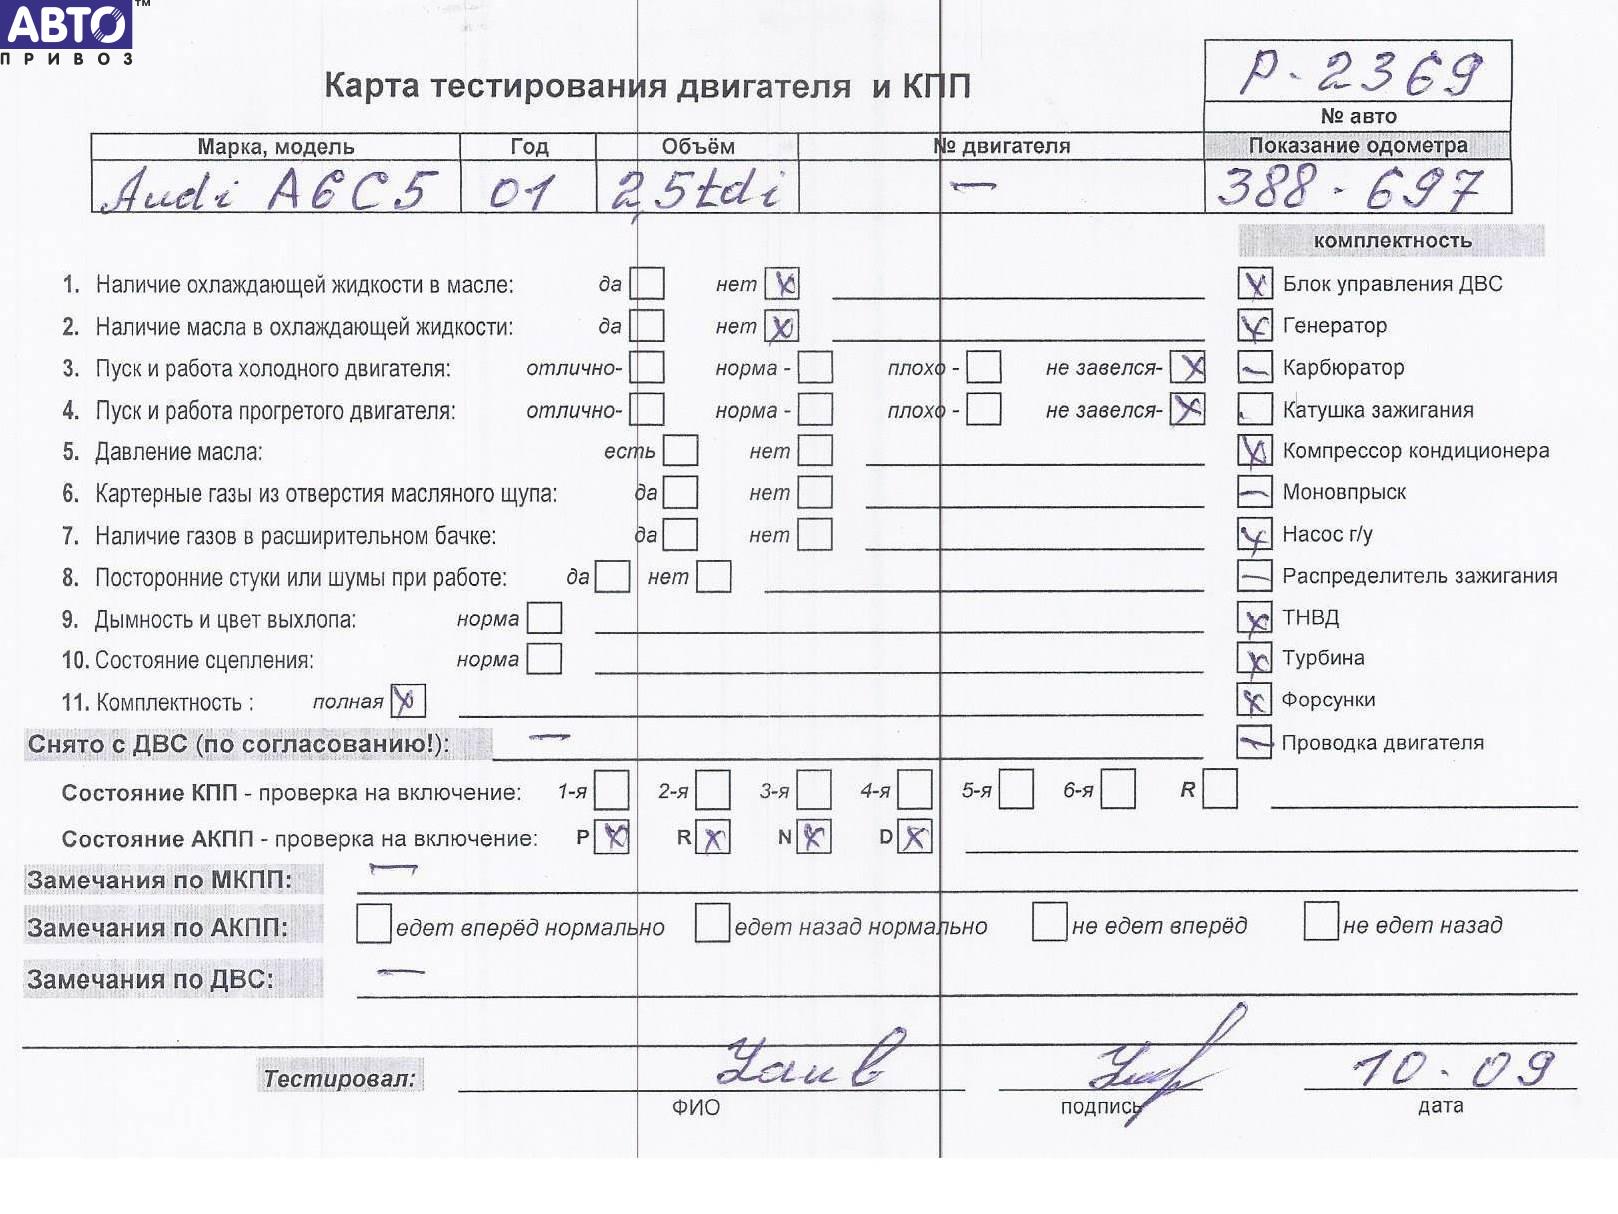 АВТО™
ПРИВОЗ
Р-2369
Карта тестирования двигателя и КПП
№ авто
Марка, модель Год Объём № двигателя Показание одометра
Audi A6C5 01 2,5tdi — 388-697
комплектность
1. Наличие охлаждающей жидкости в масле: да нет X Блок управления ДВС
2. Наличие масла в охлаждающей жидкости: да нет X Генератор
3. Пуск и работа холодного двигателя: отлично- норма - плохо - не завелся- X Карбюратор
4. Пуск и работа прогретого двигателя: отлично- норма - плохо - не завелся- X Катушка зажигания
5. Давление масла: есть нет Компрессор кондиционера
6. Картерные газы из отверстия масляного щупа: да нет Моновпрыск
7. Наличие газов в расширительном бачке: да нет Насос г/у
8. Посторонние стуки или шумы при работе: да нет Распределитель зажигания
9. Дымность и цвет выхлопа: норма ТНВД
10. Состояние сцепления: норма Турбина
11. Комплектность : полная X Форсунки
Снято с ДВС (по согласованию!): — Проводка двигателя
Состояние КПП - проверка на включение: 1-я 2-я 3-я 4-я 5-я 6-я R
Состояние АКПП - проверка на включение: P X R X N X D X
Замечания по МКПП: —
Замечания по АКПП: едет вперёд нормально едет назад нормально не едет вперёд не едет назад
Замечания по ДВС: —
Тестировал: 10.09
ФИО подпись дата